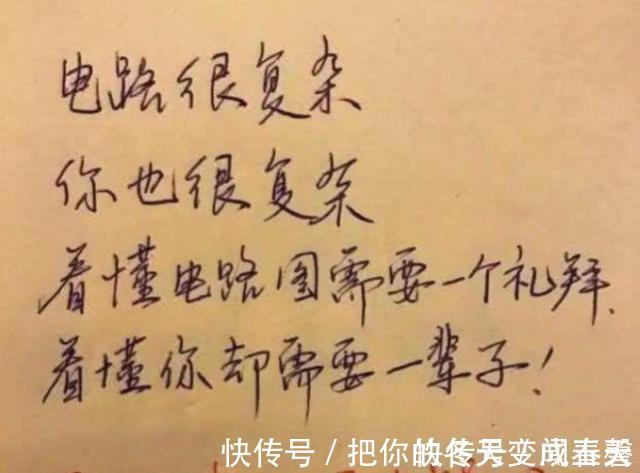 电路很复杂
你也很复杂
看懂电路图需要一个礼拜.
看懂你却需要一辈子!
快传号 / 把你的冬天变成春天